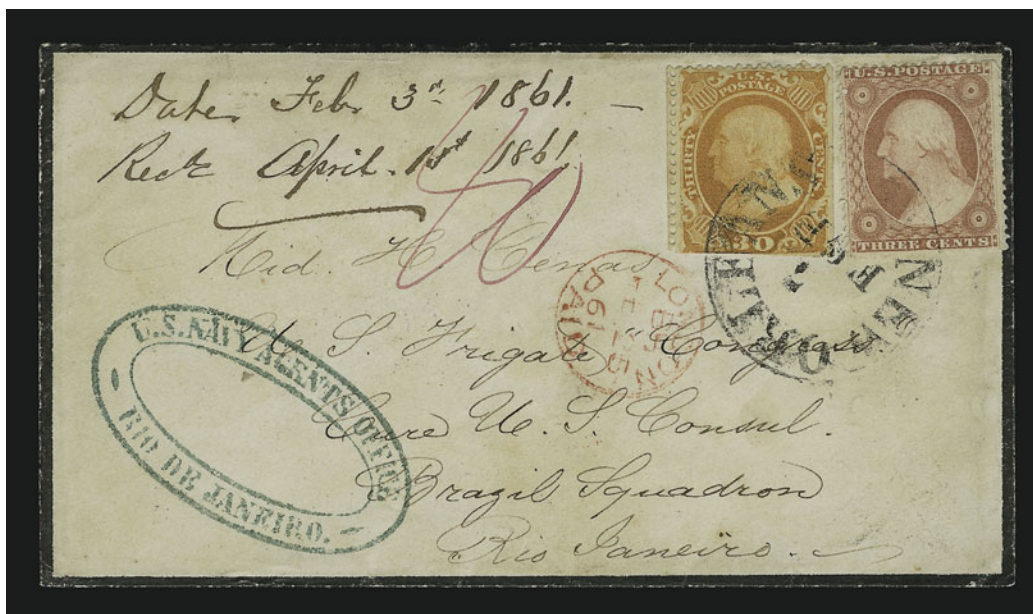 Date Feb. 3rd 1861. —
Recd April. 1st 1861.
U.S. POSTAGE
THIRTY CENTS
30
U.S. POSTAGE
THREE CENTS
NEW ORLEANS
FEB
LONDON
FE 25
61
PAID
Mid. H. Cenas.
U. S. Frigate "Congress"
Care U. S. Consul.
Brazil Squadron
Rio Janeiro.
U.S. NAVY AGENTS OFFICE
RIO DE JANEIRO.